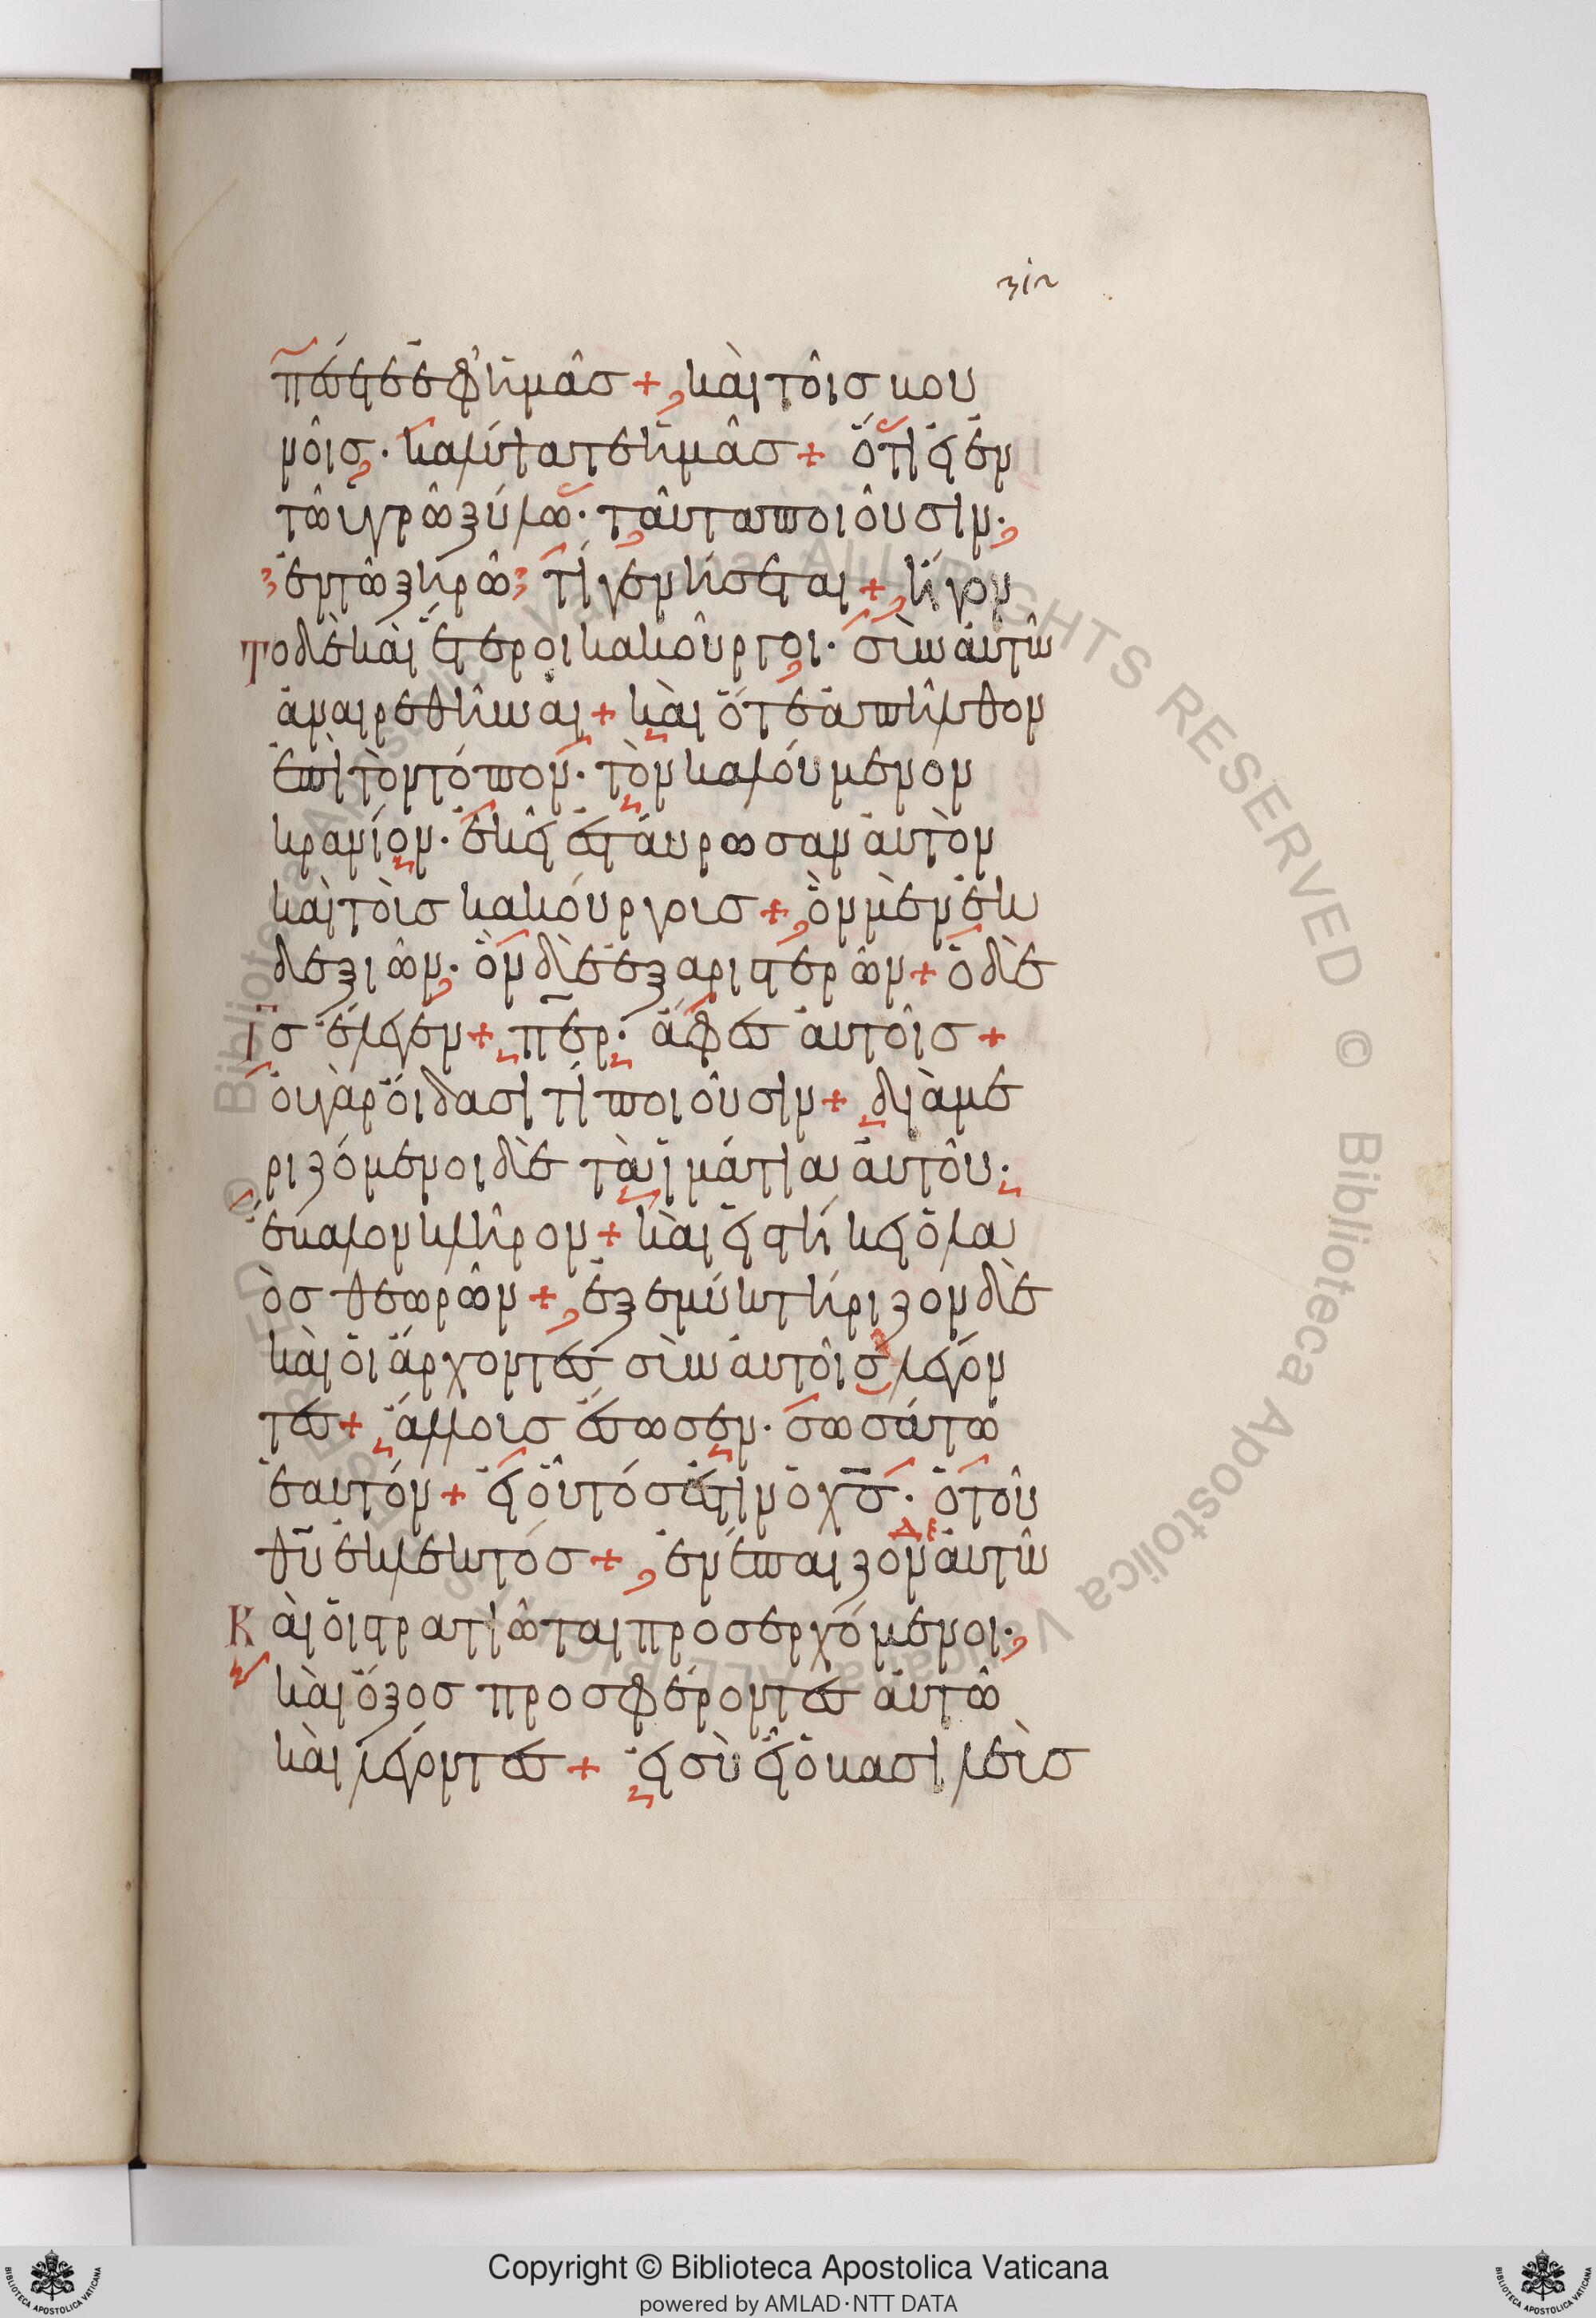 312
πέσετε ἐφ' ἡμᾶσ + καὶ τοῖσ βου
νοῖσ· καλύψατε ἡμᾶσ + ὅτι εἰ ἐν
τῶ ὑγρῶ ξύλω· ταῦτα ποιοῦσιν·
ἐν τῶ ξηρῶ τί γενήσεται + ἤγον
το δὲ καὶ ἕτεροι κακοῦργοι· σὺν αὐτῶ
ἀναιρεθῆναι + καὶ ὅτε ἀπῆλθον
ἐπὶ τὸν τόπον· τὸν καλούμενον
κρανίον· ἐκεῖ ἐσταύρωσαν αὐτὸν
καὶ τοὺσ κακούργουσ + ὃν μὲν ἐκ
δεξιῶν· ὃν δὲ ἐξ ἀριστερῶν + ὁ δὲ
ἸΣ ἔλεγεν + περ· ἄφεσ αὐτοῖσ +
οὐ γὰρ οἴδασι τί ποιοῦσιν + διαμε
ριζόμενοι δὲ τὰ ἱμάτια αὐτοῦ·
ἔβαλον κλῆρον + καὶ εἱστήκει ὁ λα
ὸσ θεωρῶν + ἐξεμυκτήριζον δὲ
καὶ οἱ ἄρχοντεσ σὺν αὐτοῖσ λέγον
τεσ + ἄλλουσ ἔσωσεν· σωσάτω
ἑαυτόν + εἰ οὗτόσ ἐστιν ὁ χσ· ὁ τοῦ
θυ ἐκλεκτόσ + ἐνέπαιζον δὲ αὐτῶ
Καὶ οἱ στρατιῶται προσερχόμενοι·
καὶ ὄξοσ προσφέροντεσ αὐτῶ
καὶ λέγοντεσ + εἰ σὺ εἶ ὁ βασιλεὺσ
Copyright © Biblioteca Apostolica Vaticana
powered by AMLAD·NTT DATA